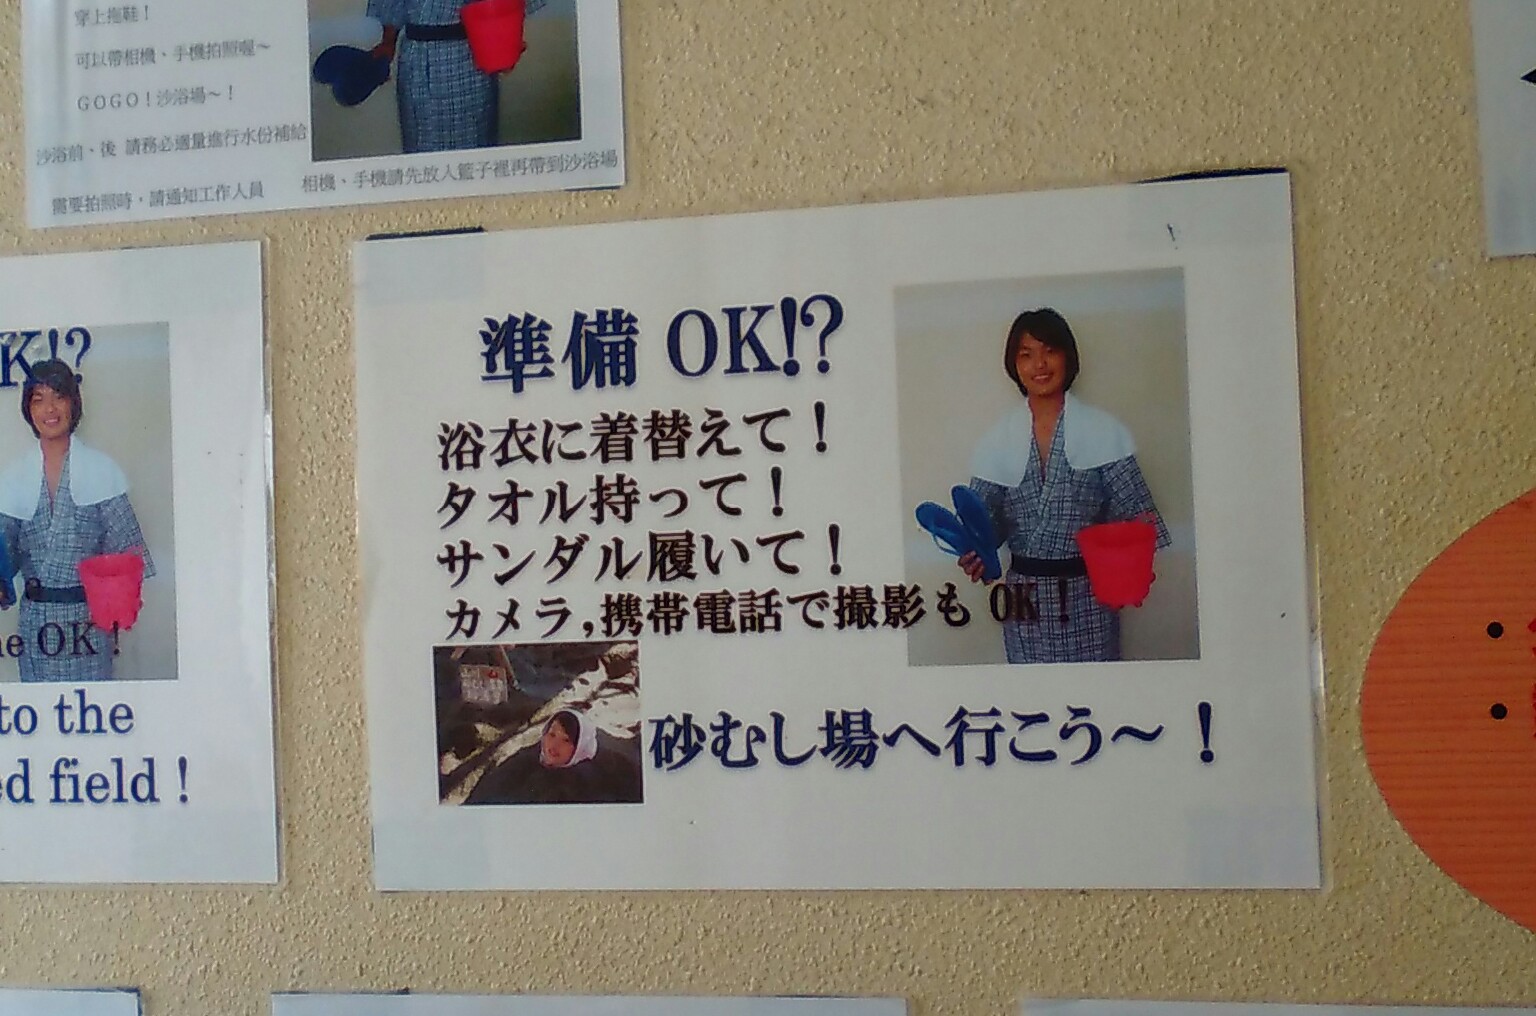 穿上拖鞋！
可以帶相機、手機拍照喔～
ＧＯＧＯ！沙浴場～！
沙浴前、後 請務必適量進行水份補給
需要拍照時，請通知工作人員
相機、手機請先放入籃子裡再帶到沙浴場
K!?
OK！
to the
field！
準備 OK!?
浴衣に着替えて！
タオル持って！
サンダル履いて！
カメラ,携帯電話で撮影も OK！
砂むし場へ行こう～！